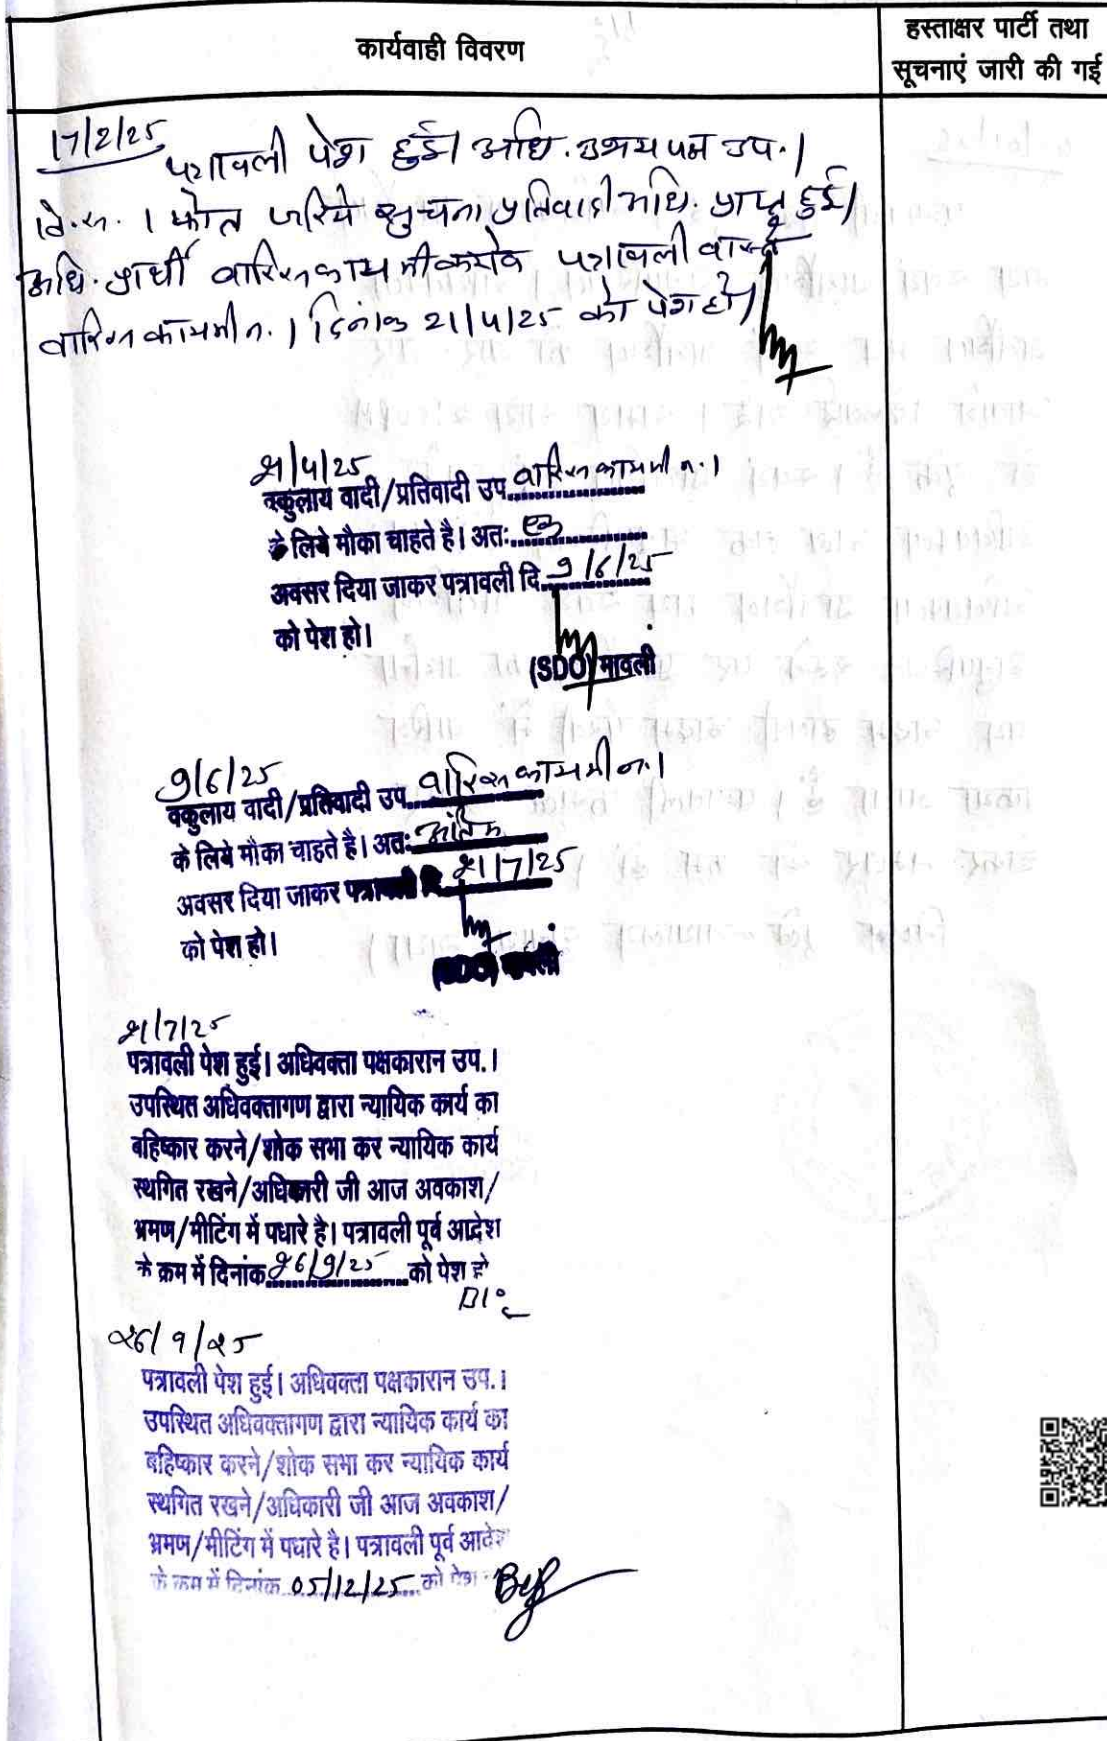 कार्यवाही विवरण
हस्ताक्षर पार्टी तथा
सूचनाएं जारी की गई
17/2/25
पत्रावली पेश हुई। अधि. उभय पक्ष उप.।
फोत जरिये सुचना प्रतिवादी अधि. प्राप्त हुई।
अधि. प्रार्थी वारिसकायमी पत्रावली वास्ते
वारिसकायमी न. 1 दिनांक 21/4/25 को पेश हो।
21/4/25
वकुलाय वादी/प्रतिवादी उप. वारिसकायमी न.1
के लिये मौका चाहते है। अतः एक
अवसर दिया जाकर पत्रावली दि. 9/6/25
को पेश हो।
(SDO) मावली
9/6/25
वकुलाय वादी/प्रतिवादी उप. वारिसकायमी न.1
के लिये मौका चाहते है। अतः अंतिम
अवसर दिया जाकर पत्रावली दि 21/7/25
को पेश हो।
(SDO) मावली
21/7/25
पत्रावली पेश हुई। अधिवक्ता पक्षकारान उप.।
उपस्थित अधिवक्तागण द्वारा न्यायिक कार्य का
बहिष्कार करने/शोक सभा कर न्यायिक कार्य
स्थगित रखने/अधिकारी जी आज अवकाश/
भ्रमण/मीटिंग में पधारे है। पत्रावली पूर्व आदेश
के क्रम में दिनांक 26/9/25 को पेश हो
26/9/25
पत्रावली पेश हुई। अधिवक्ता पक्षकारान उप.।
उपस्थित अधिवक्तागण द्वारा न्यायिक कार्य का
बहिष्कार करने/शोक सभा कर न्यायिक कार्य
स्थगित रखने/अधिकारी जी आज अवकाश/
भ्रमण/मीटिंग में पधारे है। पत्रावली पूर्व आदेश
के क्रम में दिनांक 05/12/25 को पेश